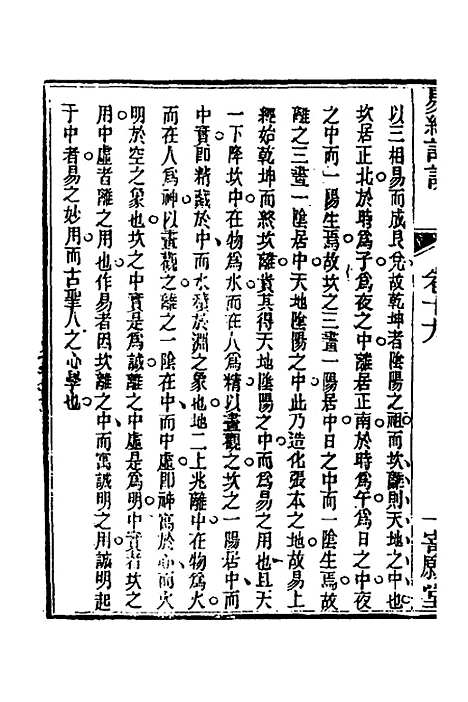 以三相易而成艮兌故乾坤者陰陽之祖而坎離則天地之中也
坎居正北於時爲子爲夜之中離居正南於時爲午爲日之中夜
之中而一陽生焉故坎之三畫一陽居中日之中而一陰生焉故
離之三畫一陰居中天地陰陽之中此乃造化張本之地故易上
經始乾坤而終坎離貴其得天地陰陽之中而爲易之用也且天
一下降坎中在物爲水而在人爲精以畫觀之坎之一陽居中而
中實即精藏於中而水發於淵之象也地二上兆離中在物爲火
而在人爲神以畫觀之離之一陰在中而中虛即神寓於心而火
明於空之象也坎之中實是爲誠離之中虛是爲明中實者坎之
用中虛者離之用也作易者因坎離之中而寓誠明之用誠明起
于中者易之妙用而古聖人之心學也
卷十九
一
願堂